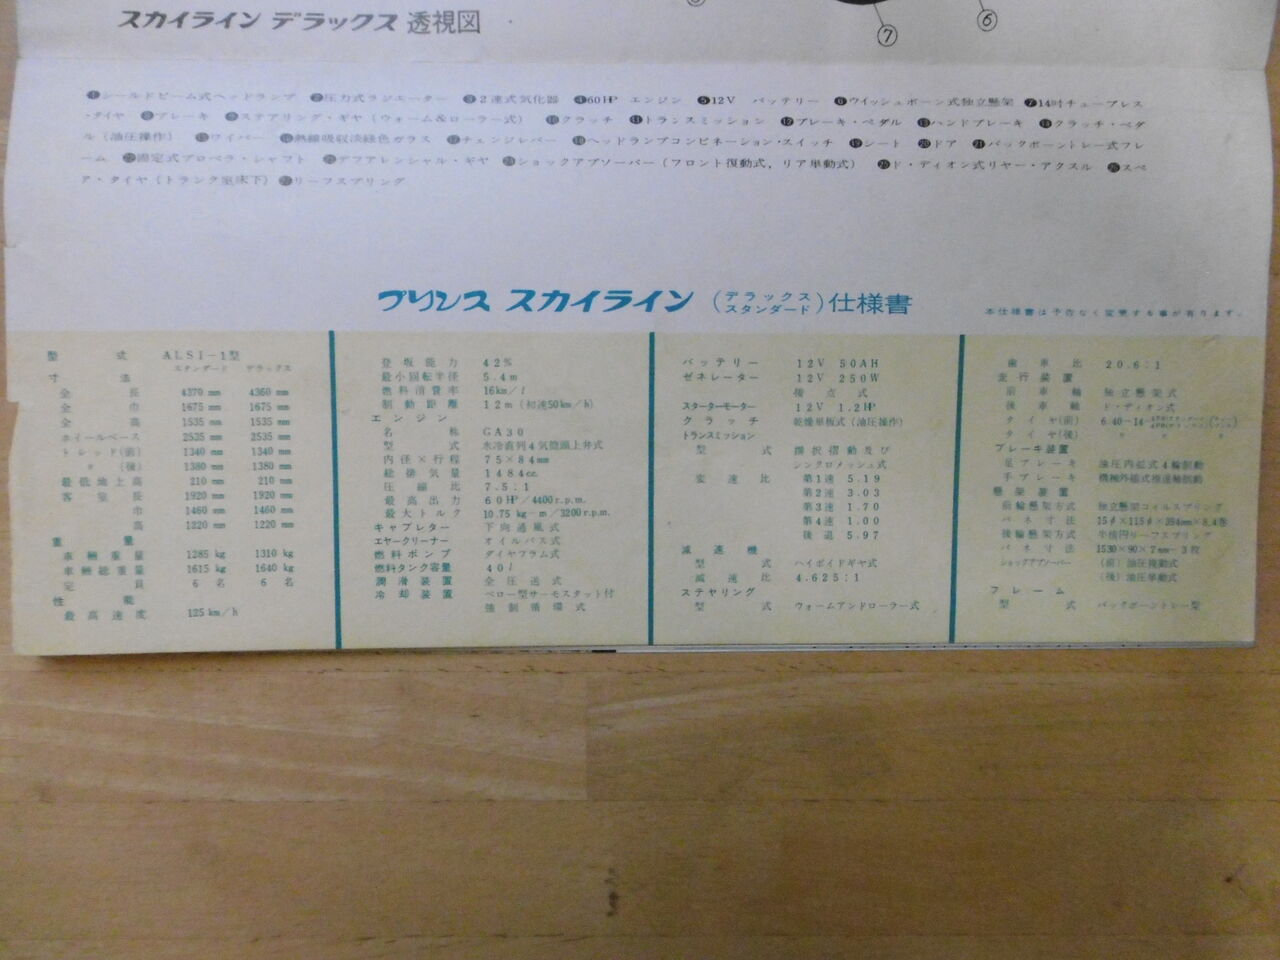 スカイライン デラックス 透視図
⑦
⑥
❶シールドビーム式ヘッドランプ ❷圧力式ラジエーター ❸2連式気化器 ❹60HP エンジン ❺12V バッテリー ❻ウイッシュボーン式独立懸架 ❼14吋チューブレス
・タイヤ ❽ブレーキ ❾ステアリング・ギヤ (ウォーム&ローラー式) ❿クラッチ ⓫トランスミッション ⓬ブレーキ・ペダル ⓭ハンドブレーキ ⓮クラッチ・ペダ
ル (油圧操作) ⓯ワイパー ⓰熱線吸収淡緑色ガラス ⓱チェンジレバー ⓲ヘッドランプコンビネーション・スイッチ ⓳シート ⓴ドア ㉑バックボーントレー式フレ
ーム 固定式プロペラ・シャフト デフアレンシャル・ギヤ ショックアブソーバー (フロント復動式, リア単動式) ㉕ド・ディオン式リヤー・アクスル ㉖スペ
ア・タイヤ (トランク室床下) ㉗リーフスプリング
プリンス スカイライン (デラックス スタンダード) 仕様書
本仕様書は予告なく変更する事が有ります。
型式 ALSI-1型
スタンダード デラックス
寸法
全長 4370 mm 4360 mm
全巾 1675 mm 1675 mm
全高 1535 mm 1535 mm
ホイールベース 2535 mm 2535 mm
トレッド(前) 1340 mm 1340 mm
〃 (後) 1380 mm 1380 mm
最低地上高 210 mm 210 mm
客室長 1920 mm 1920 mm
巾 1460 mm 1460 mm
高 1220 mm 1220 mm
重量
車輛重量 1285 kg 1310 kg
車輛総重量 1615 kg 1640 kg
定員 6名 6名
性能
最高速度 125 km/h
登坂能力 42%
最小回転半径 5.4m
燃料消費率 16km/l
制動距離 12m (初速50km/h)
エンジン
名称 GA30
型式 水冷直列4気筒頭上弁式
内径×行程 75×84mm
総排気量 1484cc
圧縮比 7.5:1
最高出力 60HP/4400r.p.m.
最大トルク 10.75 kg-m/3200r.p.m.
キャブレター 下向通風式
エヤークリーナー オイルバス式
燃料ポンプ ダイヤフラム式
燃料タンク容量 40l
潤滑装置 全圧送式
冷却装置 ベロー型サーモスタット付
強制循環式
バッテリー 12V 50AH
ゼネレーター 12V 250W
接点式
スターターモーター 12V 1.2HP
クラッチ 乾燥単板式 (油圧操作)
トランスミッション
型式 撰択摺動及び
シンクロメッシュ式
変速比 第1速 5.19
第2速 3.03
第3速 1.70
第4速 1.00
後退 5.97
減速機
型式 ハイポイドギヤ式
減速比 4.625:1
ステヤリング
型式 ウォームアンドローラー式
歯車比 20.6:1
走行装置
前車軸 独立懸架式
後車軸 ド・ディオン式
タイヤ(前) 6.40-14
タイヤ(後) 〃 〃 〃
ブレーキ装置
足ブレーキ 油圧内拡式4輪制動
手ブレーキ 機械外縮式推進軸制動
懸架装置
前輪懸架方式 独立懸架コイルスプリング
バネ寸法 15φ×115φ×394mm×8.4巻
後輪懸架方式 半楕円リーフスプリング
バネ寸法 1530×90×7mm-3枚
ショックアブソーバー (前) 油圧複動式
(後) 油圧単動式
フレーム
型式 バックボーントレー型